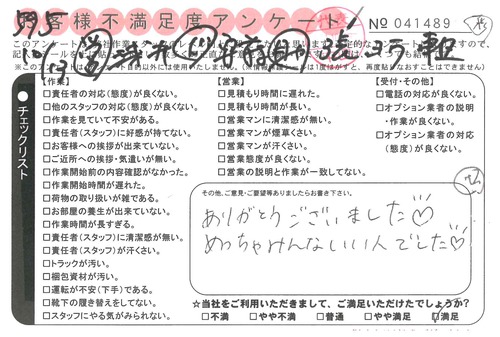 お客様不満足度アンケート
No 041489
【作業】
□責任者の対応(態度)が良くない。
□他のスタッフの対応(態度)が良くない。
□作業を見ていて不安がある。
□責任者(スタッフ)に好感が持てない。
□お客様への挨拶が出来ていない。
□ご近所への挨拶・気遣いが無い。
□作業開始前の内容確認がなかった。
□作業開始時間が遅れた。
□荷物の取り扱いが雑である。
□お部屋の養生が出来ていない。
□作業時間が長すぎる。
□責任者(スタッフ)に清潔感が無い。
□責任者(スタッフ)が汗くさい。
□トラックが汚い。
□梱包資材が汚い。
□運転が不安(下手)である。
□靴下の履き替えをしてない。
□スタッフにやる気がみられない。
【営業】
□見積もり時間に遅れた。
□見積もり時間が長い。
□営業マンに清潔感が無い。
□営業マンが煙草くさい。
□営業マンが汗くさい。
□営業態度が良くない。
□営業の説明と作業が一致してない。
【受付・その他】
□電話の対応が良くない。
□オプション業者の説明
・作業が良くない。
□オプション業者の対応
(態度)が良くない。
チェックリスト
その他、ご意見・ご要望等ありましたらお書き下さい。
ありがとうございました♡
めっちゃみんないい人でした♡
☆当社をご利用いただきまして、ご満足いただけたでしょうか?
□不満 □やや不満 □普通 □やや満足 ☑満足